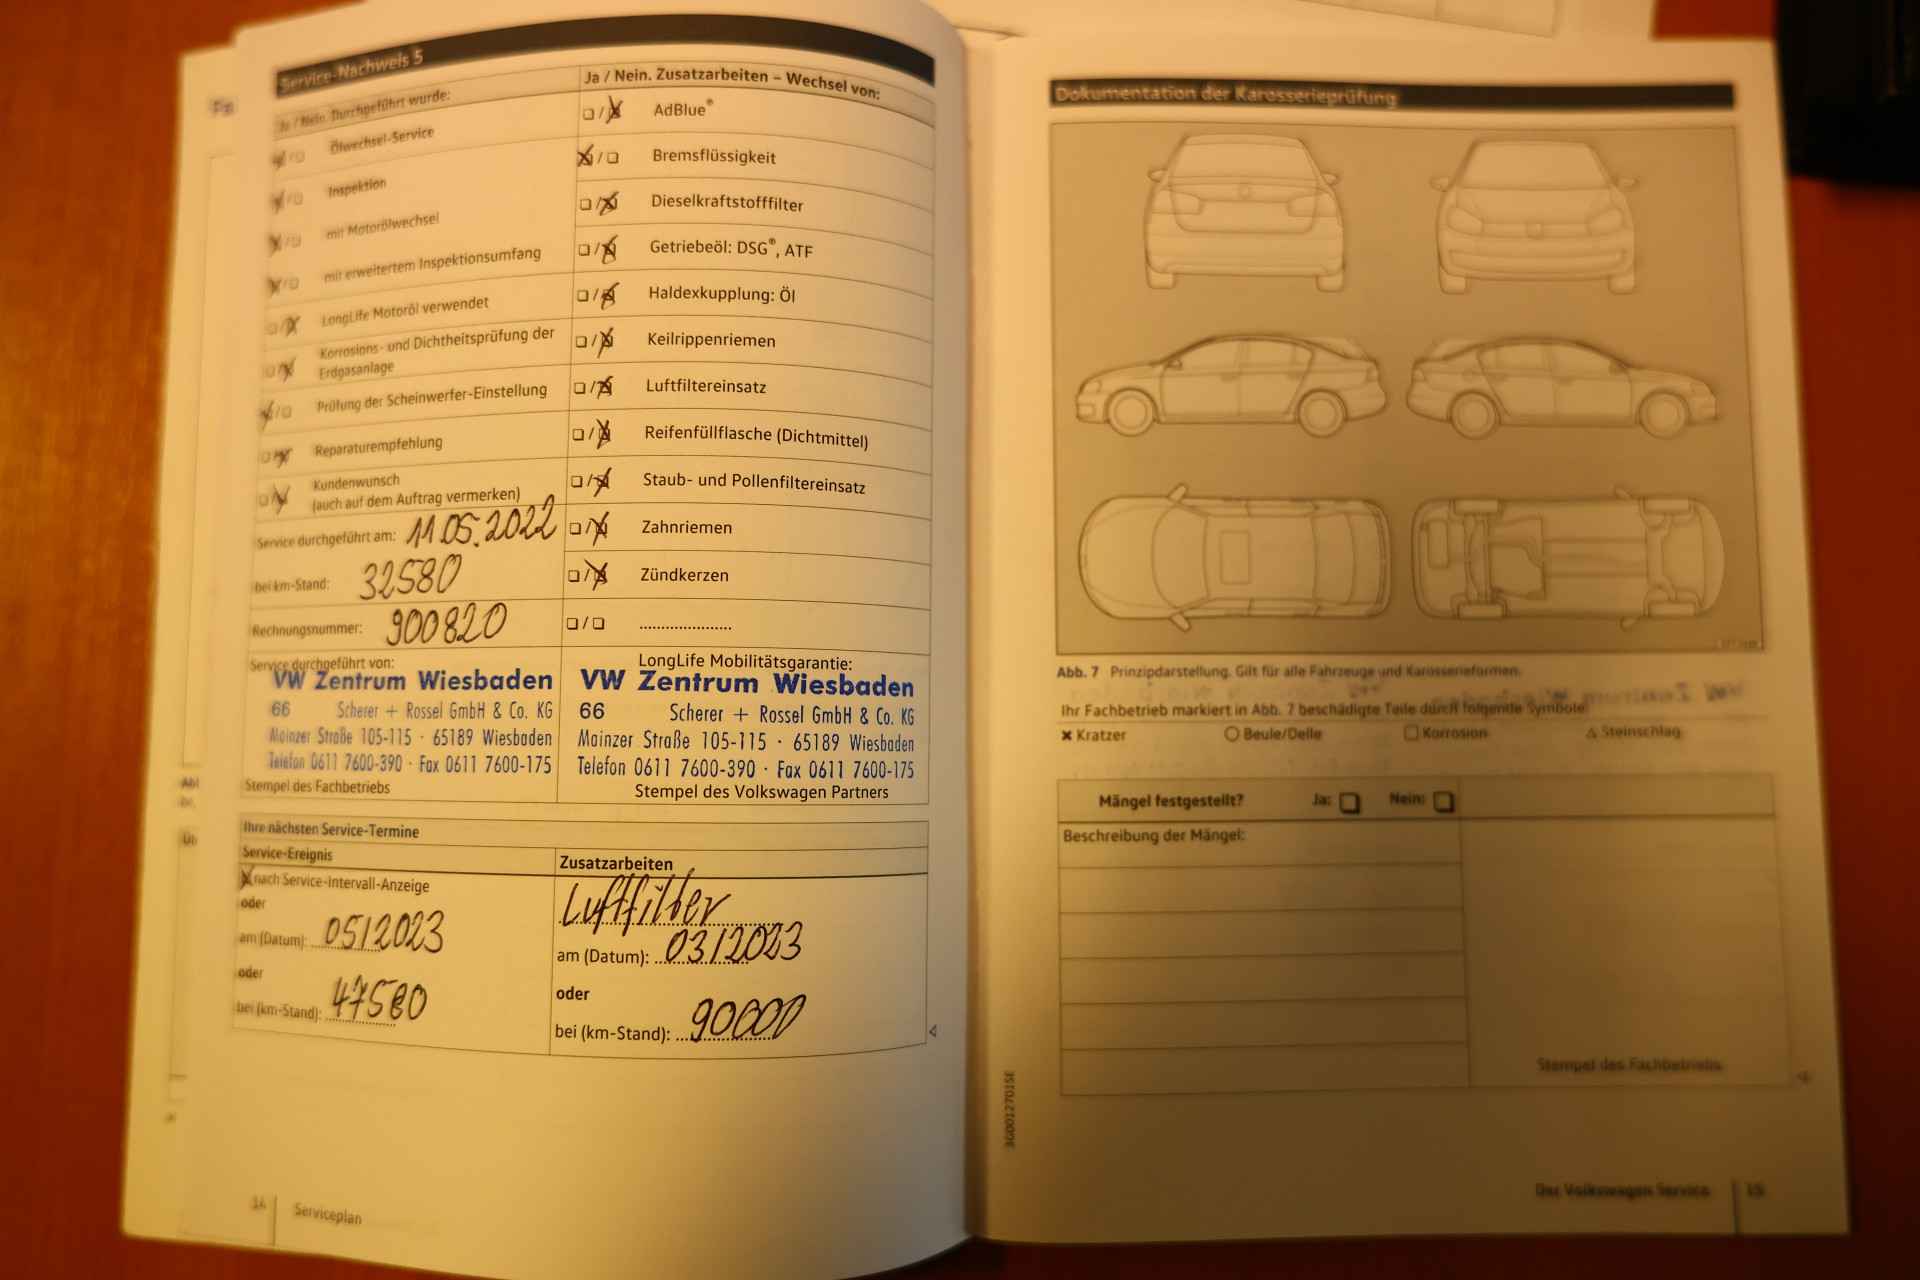 Service-Nachweis 5
Ja / Nein. Durchgeführt wurde:
Ölwechsel-Service
Inspektion
mit Motorölwechsel
mit erweitertem Inspektionsumfang
LongLife Motoröl verwendet
Korrosions- und Dichtheitsprüfung der
Erdgasanlage
Prüfung der Scheinwerfer-Einstellung
Reparaturempfehlung
Kundenwunsch
(auch auf dem Auftrag vermerken)
Service durchgeführt am: 11.05.2022
bei km-Stand: 32580
Rechnungsnummer: 900820
Service durchgeführt von:
VW Zentrum Wiesbaden
66 Scherer + Rossel GmbH & Co. KG
Mainzer Straße 105-115 · 65189 Wiesbaden
Telefon 0611 7600-390 · Fax 0611 7600-175
Stempel des Fachbetriebs
Ja / Nein. Zusatzarbeiten – Wechsel von:
AdBlue®
Bremsflüssigkeit
Dieselkraftstofffilter
Getriebeöl: DSG®, ATF
Haldexkupplung: Öl
Keilrippenriemen
Luftfiltereinsatz
Reifenfüllflasche (Dichtmittel)
Staub- und Pollenfiltereinsatz
Zahnriemen
Zündkerzen
....................
LongLife Mobilitätsgarantie:
VW Zentrum Wiesbaden
66 Scherer + Rossel GmbH & Co. KG
Mainzer Straße 105-115 · 65189 Wiesbaden
Telefon 0611 7600-390 · Fax 0611 7600-175
Stempel des Volkswagen Partners
Ihre nächsten Service-Termine
Service-Ereignis
nach Service-Intervall-Anzeige
oder
am (Datum): 05/2023
oder
bei (km-Stand): 47580
Zusatzarbeiten
Luftfilter
am (Datum): 03/2023
oder
bei (km-Stand): 90000
14 Serviceplan
Dokumentation der Karosserieprüfung
Abb. 7 Prinzipdarstellung. Gilt für alle Fahrzeuge und Karosserieformen.
Ihr Fachbetrieb markiert in Abb. 7 beschädigte Teile durch folgende Symbole:
Kratzer
Beule/Delle
Korrosion
Steinschlag
Mängel festgestellt? Ja: Nein:
Beschreibung der Mängel:
Stempel des Fachbetriebs
3G0012701SE
Der Volkswagen Service 15